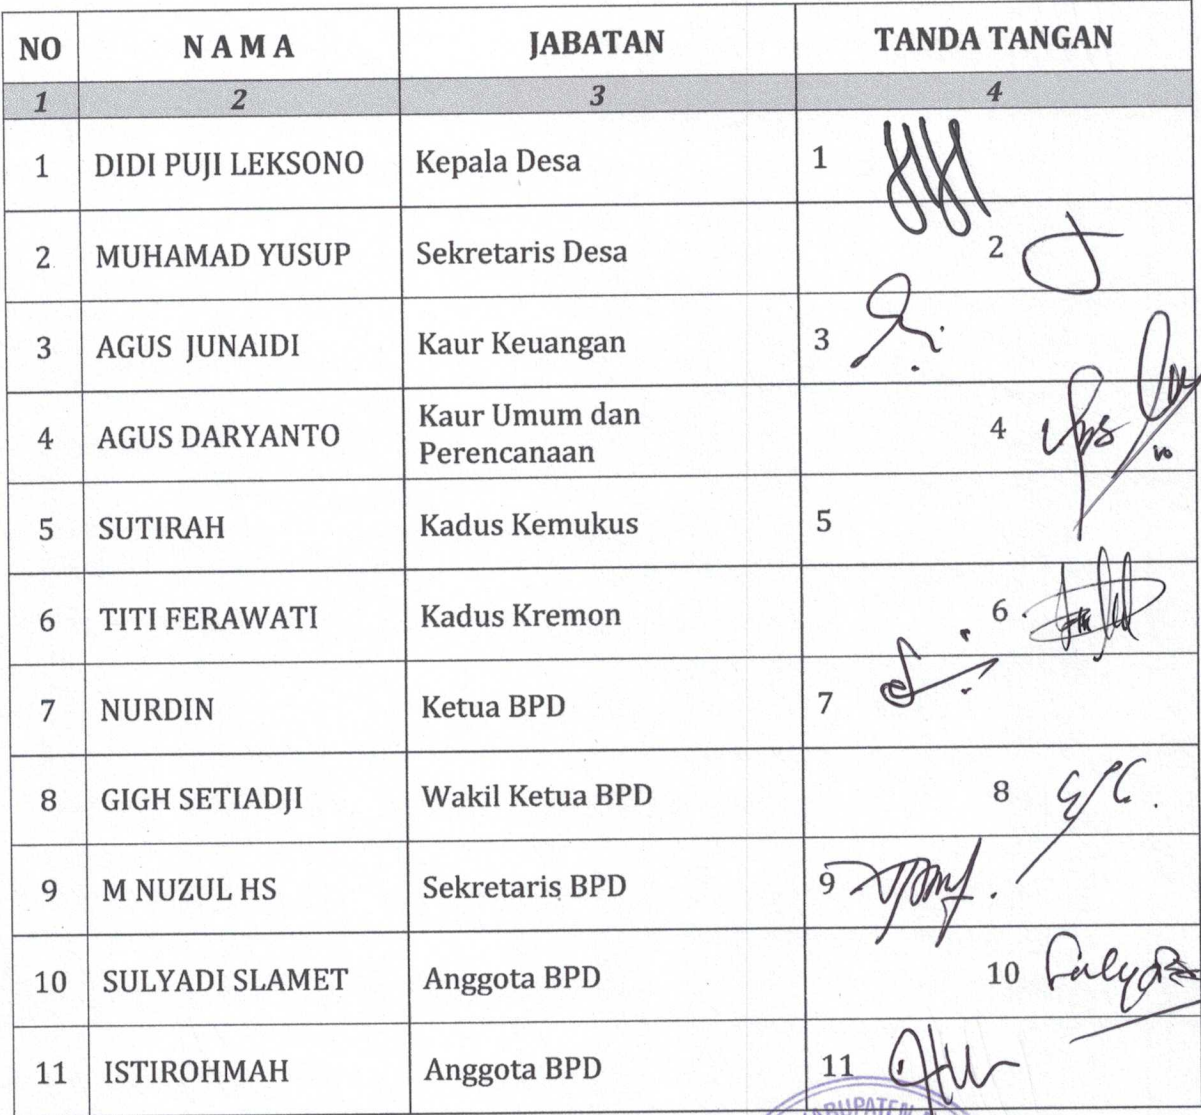 NO NAMA JABATAN TANDA TANGAN
1 2 3 4
1 DIDI PUJI LEKSONO Kepala Desa 1
2 MUHAMAD YUSUP Sekretaris Desa 2
3 AGUS JUNAIDI Kaur Keuangan 3
4 AGUS DARYANTO Kaur Umum dan
Perencanaan 4
5 SUTIRAH Kadus Kemukus 5
6 TITI FERAWATI Kadus Kremon 6
7 NURDIN Ketua BPD 7
8 GIGH SETIADJI Wakil Ketua BPD 8
9 M NUZUL HS Sekretaris BPD 9
10 SULYADI SLAMET Anggota BPD 10
11 ISTIROHMAH Anggota BPD 11